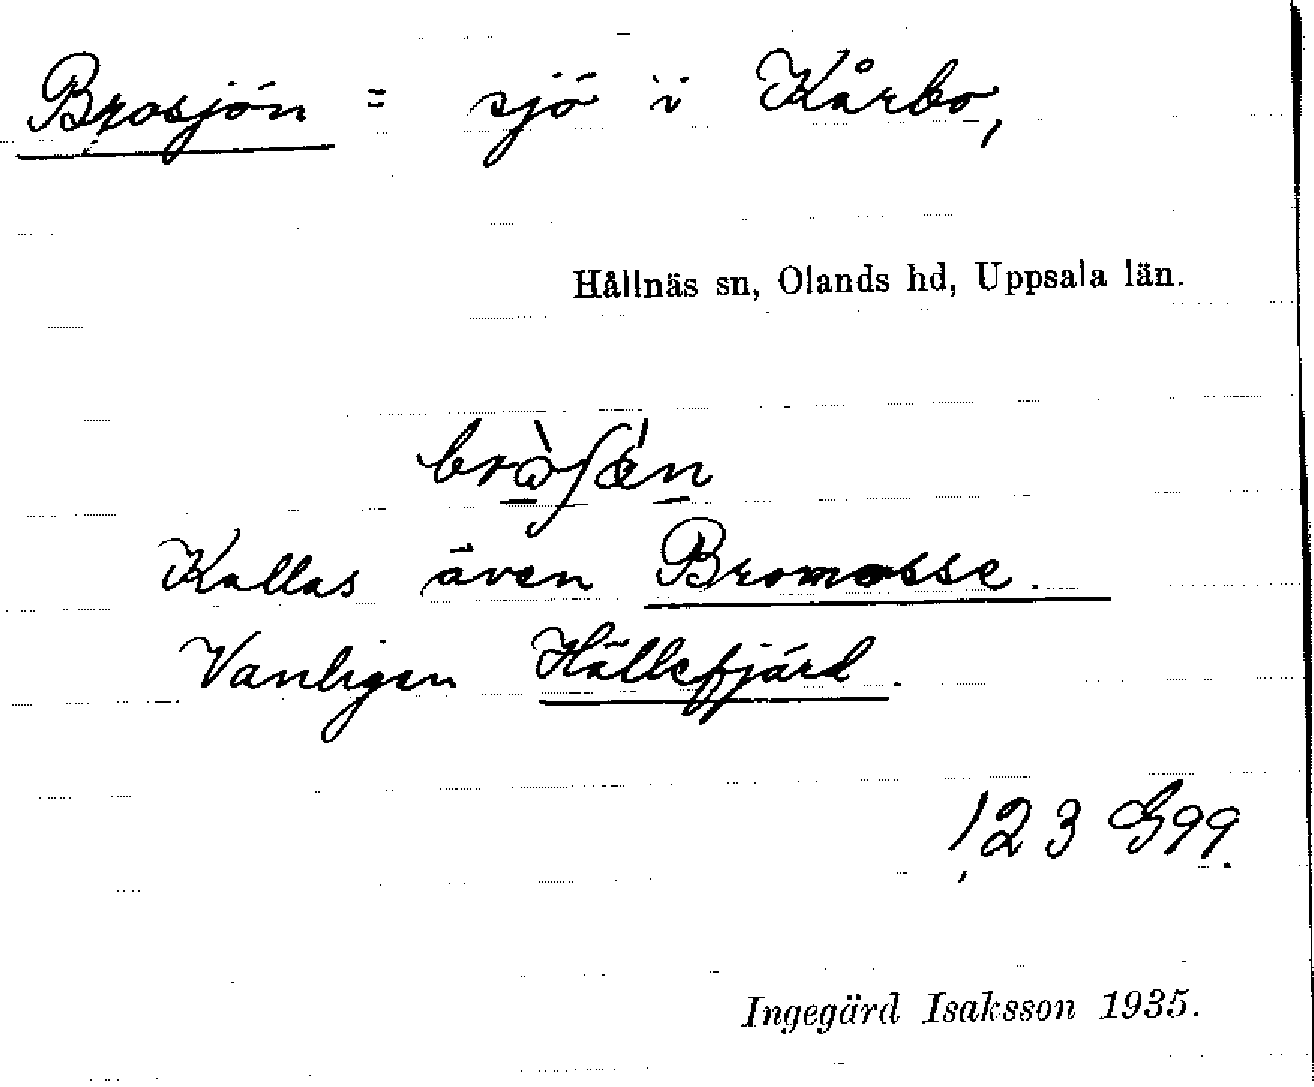 Brosjön = sjö i Kårbo,
Hållnäs sn, Olands hd, Uppsala län.
Kallas även Bromosse.
Vanligen Hällefjärd.
123 G 99.
Ingegärd Isaksson 1935.